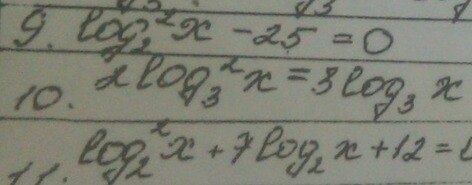 9. log₂²x - 25 = 0
10. 2log₃²x = 3log₃x
11. log₂²x + 7log₂x + 12 =